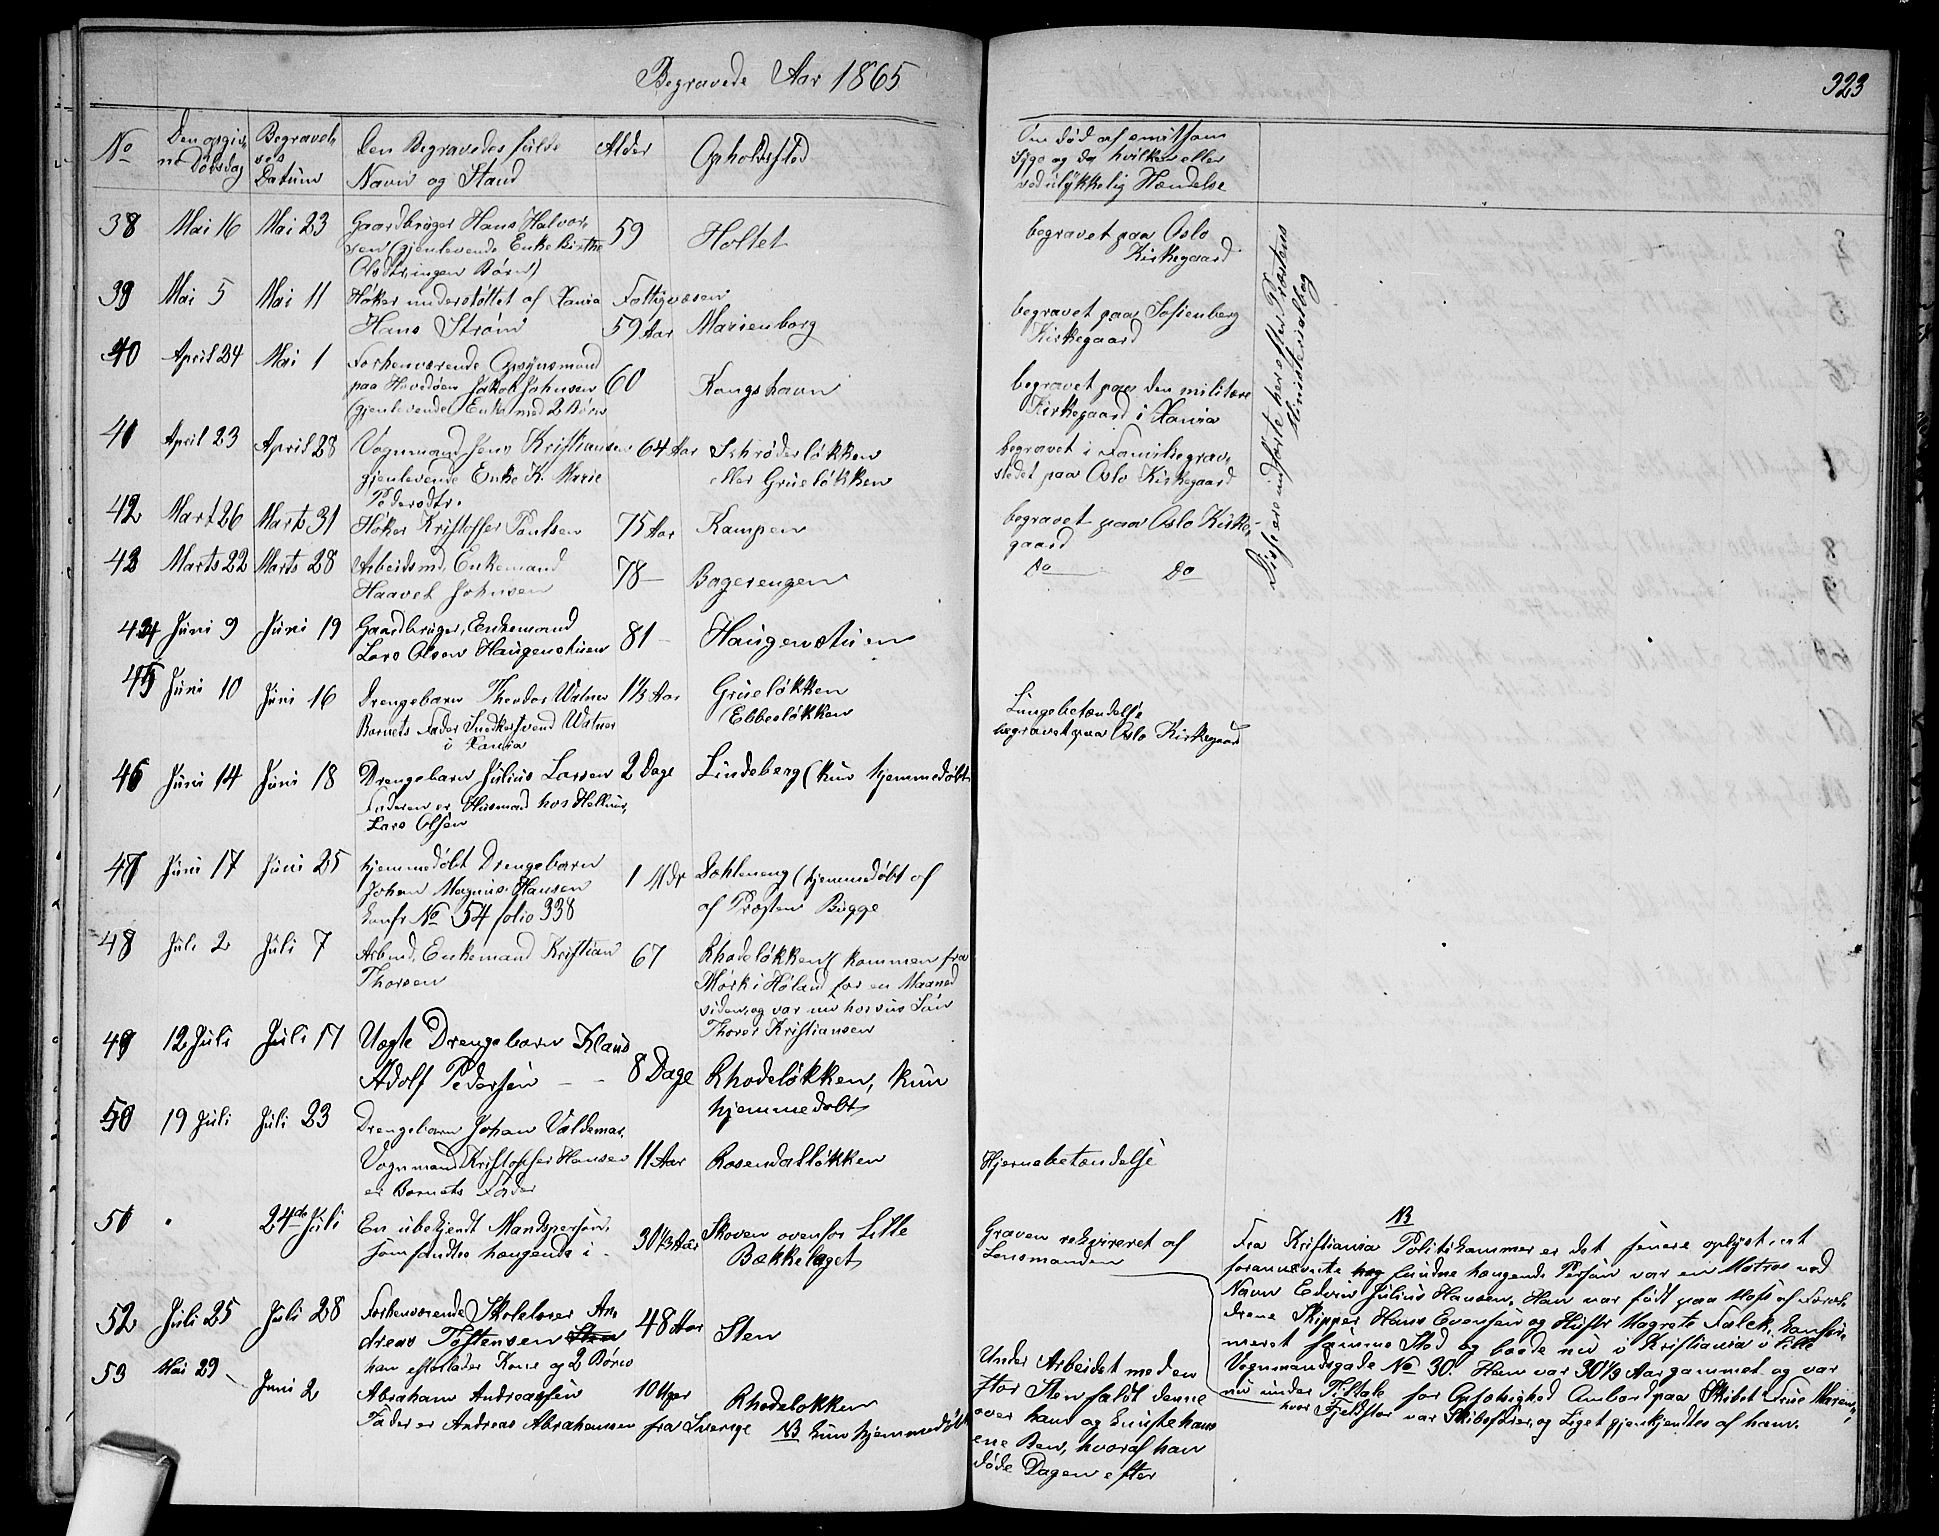 Begravede Aar 1865
323
No
Den opgiv-
ne Dødsdag
Begravel-
ses
Datum
Den Begravedes fulde
Navn og Stand
Alder
Opholdssted
Om død af smitsom
Syge og da hvilken eller
ved ulykkelig Hændelse
38 Mai 16 Mai 23 Gaardbruger Hans Halvor-
sen (gjenlevende Enke Birthe
Olsdtr, ingen Børn)
59 Holtet
begravet paa Oslo
Kirkegaard
39 Mai 5 Mai 11 Høker understøttet af Xania Fattigvæsen
Hans Strøm 59 Aar Marienborg
begravet paa Sofienberg
Kirkegaard
40 April 24 Mai 1 Forhenværende Opsynsmand
paa Hovedøen Jakob Johnsen 60 Kongshavn
(gjenlevende Enke med 2 Børn
begravet paa den militære
Kirkegaard i Xania
41 April 23 April 28 Vognmand Jens Kristiansen 64 Aar Schrøderløkken
gjenlevende Enke K. Marie eller Grueløkken
Pedersdtr.
begravet i Familiegrav-
stedet paa Oslo Kirkegaard
42 Marts 26 Marts 31 Høker Kristoffer Paulsen 75 Aar Kampen
begravet paa Oslo Kirke-
gaard
43 Marts 22 Marts 28 Arbeidsmd, Enkemand
Haavel Johnsen 78 — Bagerengen
Do Do
Disse ere indførte her efter Præstens
Ministerialbog
44 Juni 9 Juni 19 Gaardbruger, Enkemand
Lars Olsen Haugenstuen 81 — Haugenstuen
45 Juni 10 Juni 16 Drengebarn Theodor Watner 1 1/3 Aar Grueløkken
Barnets Fader Snedkersvend Watner (Ebbesløkken
i Xania
Lungebetændelse
begravet paa Oslo Kirkegaard
46 Juni 14 Juni 18 Drengebarn Julius Larsen 2 Dage Lindeberg (kun hjemmedøbt
Faderen er Husmand hos Hellerud,
Lars Olsen
47 Juni 17 Juni 25 hjemmedøbt Drengebarn
Johan Magnus Hansen 1 Mdr Dahleneng (hjemmedøbt af
Confr No 54 folio 338 af Præsten Bugge
48 Juli 2 Juli 7 Arbmd. Enkemand Kristian 67 Rhodeløkken (kommen fra
Thorsen Mørk i Høland for en Maaned
siden, og var nu hos sin Søn
Thorer Kristiansen
49 12 Juli Juli 17 Uægte Drengebarn Klaus
Adolf Pedersen — - 8 Dage Rhodeløkken, kun
hjemmedøbt
50 19 Juli Juli 23 Drengebarn Johan Valdemar,
Vognmand Kristoffer Hansen 11 Aar Rosendalløkken
er Barnets Fader
Hjernebetændelse
51 24de Juli En ubekjendt Mandsperson,
som fandtes hængende i - 30 1/3 Aar Skoven ovenfor Lille
Bækkelaget
Graven rekvireret af
Lensmanden
NB
Fra Kristiania Politikammer er det senere oplyst, at
forannævnte fundne hængende Person var en Matros ved
Navn Edvin Julius Hansen. Han var født paa Moss af Foræl-
drene Skipper Hans Evensen og Hustr Magrete Falck. Confir-
meret i samme Stad og boede nu i Kristiania i Lille
Vognmandsgade No 30. Han var 30 1/3 Aar gammel og var
nu under Tiltale for Opsætsighed Ombord paa Skibet Frue Maren,
hvor Fjeldstor var Skibsfører, og Liget gjenkjendtes af ham.
52 Juli 25 Juli 28 Forhenværende Skolelærer An-
dreas Toftensen 48 Aar Sten
han efterlader Kone og 2 Børn
Under Arbeidet med en
stor Sten faldt denne
over ham og knuste hans
ene Ben, hvoraf han
døde Dagen efter
53 Mai 29 — Juni 2 Abraham Andreassen 10 Uger Rhodeløkken
Fader er Andreas Abrahamsen fra Sverige NB kun hjemmedøbt